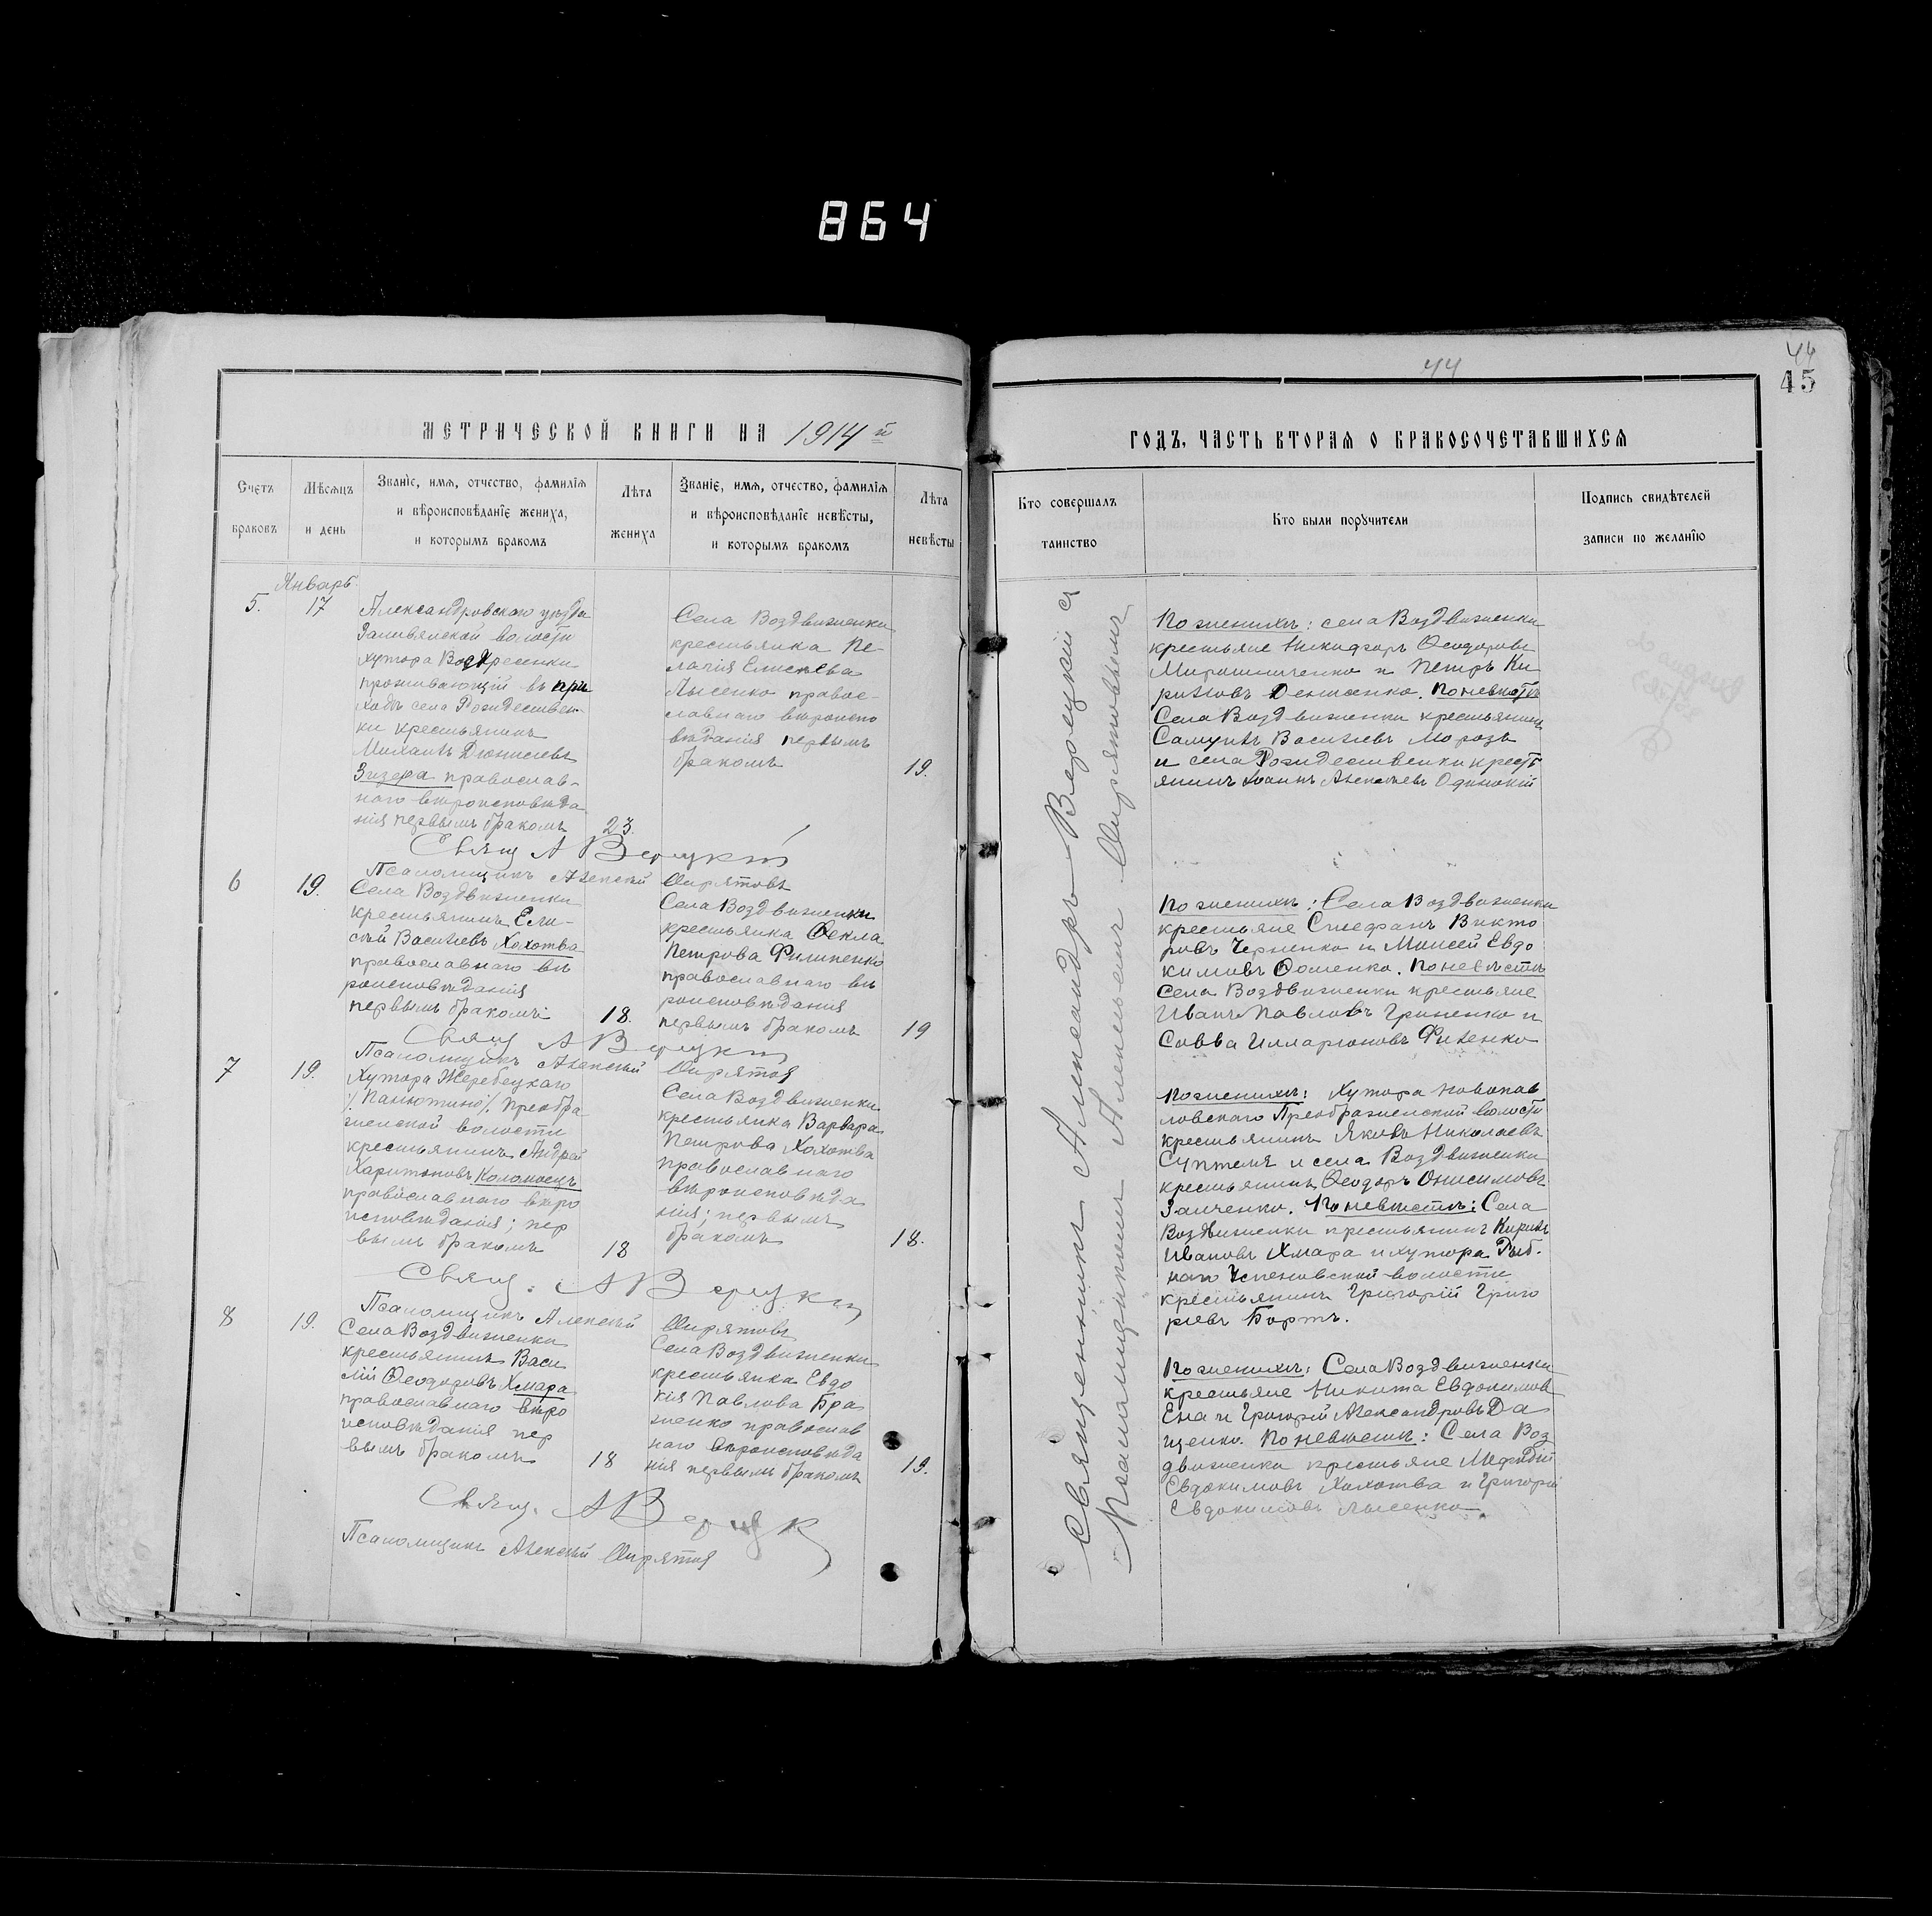 864
44
44
45
МЕТРИЧЕСКОЙ КНИГИ НА 1914 й
ГОДЪ, ЧАСТЬ ВТОРАѦ О БРАКОСОЧЕТАВШИХСѦ
Счетъ браковъ
Мѣсѧцъ и день
Званїе, имѧ, отчество, фамилїѧ
и вѣроисповѣданїе жениха,
и которымъ бракомъ
Лѣта жениха
Званїе, имѧ, отчество, фамилїѧ
и вѣроисповѣданїе невѣсты,
и которымъ бракомъ
Лѣта невѣсты
Кто совершалъ таинство
Кто были порꙋчители
Подпись свидѣтелей
записи по желанїю
Январь
5.
17
Александровскаго уѣзда
волости
хутора Воскресенки
проживающій въ при
ходѣ села Рождествен-
ки крестьянинъ
Михаилъ Діонисіевъ
Зизера православ-
наго вѣроисповѣда
нія первымъ бракомъ
23.
Села Воздвиженки
крестьянка Пе-
лагія Елисѣева
Лысенко правос-
лавнаго вѣроиспо
вѣданія первымъ
бракомъ
19.
По женихѣ: села Воздвиженки
крестьяне Никифоръ Ѳеодоровъ
Мирошниченко и Петръ Ки
рилловъ Демченко. По невѣстѣ
Села Воздвиженки крестьянинъ
Самуилъ Васильевъ Морозъ
и села Рождественки кресть
янинъ Іоаннъ Алексѣевъ Одинокій
Свящ А Верецкій
Псаломщикъ Алексѣй Ширятовъ
6
19.
Села Воздвиженки
крестьянинъ Ели-
сѣй Васильевъ Хохотва
православнаго вѣ
роисповѣданія
первымъ бракомъ
18.
Села Воздвиженки
крестьянка Ѳекла
Петрова Филипенко
православнаго вѣ
роисповѣданія
первымъ бракомъ
19
По женихѣ: Села Воздвиженки
крестьяне Стефанъ Викто
ровъ Черненко и Моисей Евдо
кимовъ Ѳоменко. По невѣстѣ
Села Воздвиженки крестьяне
Иванъ Павловъ Гриненко и
Савва Илларіоновъ Филенко
Свящ А Верецкій
Псаломщикъ Алексѣй Ширятовъ
7
19.
Хутора Жеребецкаго
/Панютино/. Преобра-
женской волости
крестьянинъ Андрей
Харитоновъ Коломоецъ
православнаго вѣро
исповѣданія; пер
вымъ бракомъ
18
Села Воздвиженки
крестьянка Варвара
Петрова Хохотва
православнаго
вѣроисповѣда
нія; первымъ
бракомъ
18.
По женихѣ: Хутора Новопав
ловскаго Преображенской волости
крестьянинъ Яковъ Николаевъ
Суптеля и села Воздвиженки
крестьянинъ Ѳеодоръ Онисимовъ
Заиченко. По невѣстѣ: Села
Воздвиженки крестьянинъ Кирилъ
Ивановъ Хмара и хутора Рыб-
наго Успеновской волости
крестьянинъ Григорій Григо
рьевъ Бортъ.
Свящ. А Верецкій
Псаломщикъ Алексѣй Ширятовъ
8
19.
Села Воздвиженки
крестьянинъ Васи
лій Ѳеодоровъ Хмара
православнаго вѣро
исповѣданія пер
вымъ бракомъ
18
Села Воздвиженки
крестьянка Евдо
кія Павлова Бра
женко православ
наго вѣроисповѣда
нія первымъ бракомъ
19.
По женихѣ: Села Воздвиженки
крестьяне Никита Евдокимовъ
Ена и Григорій Александровъ Да
щенко. По невѣстѣ: Села Воз
движенки крестьяне Меѳодій
Евдокимовъ Хохотва и Григорій
Евдокимовъ Лысенко
Свящ. А Верецк
Псаломщикъ Алексѣй Ширятовъ
Священникъ Александръ Верецкій съ
Псаломщикомъ Алексѣемъ Ширятовымъ